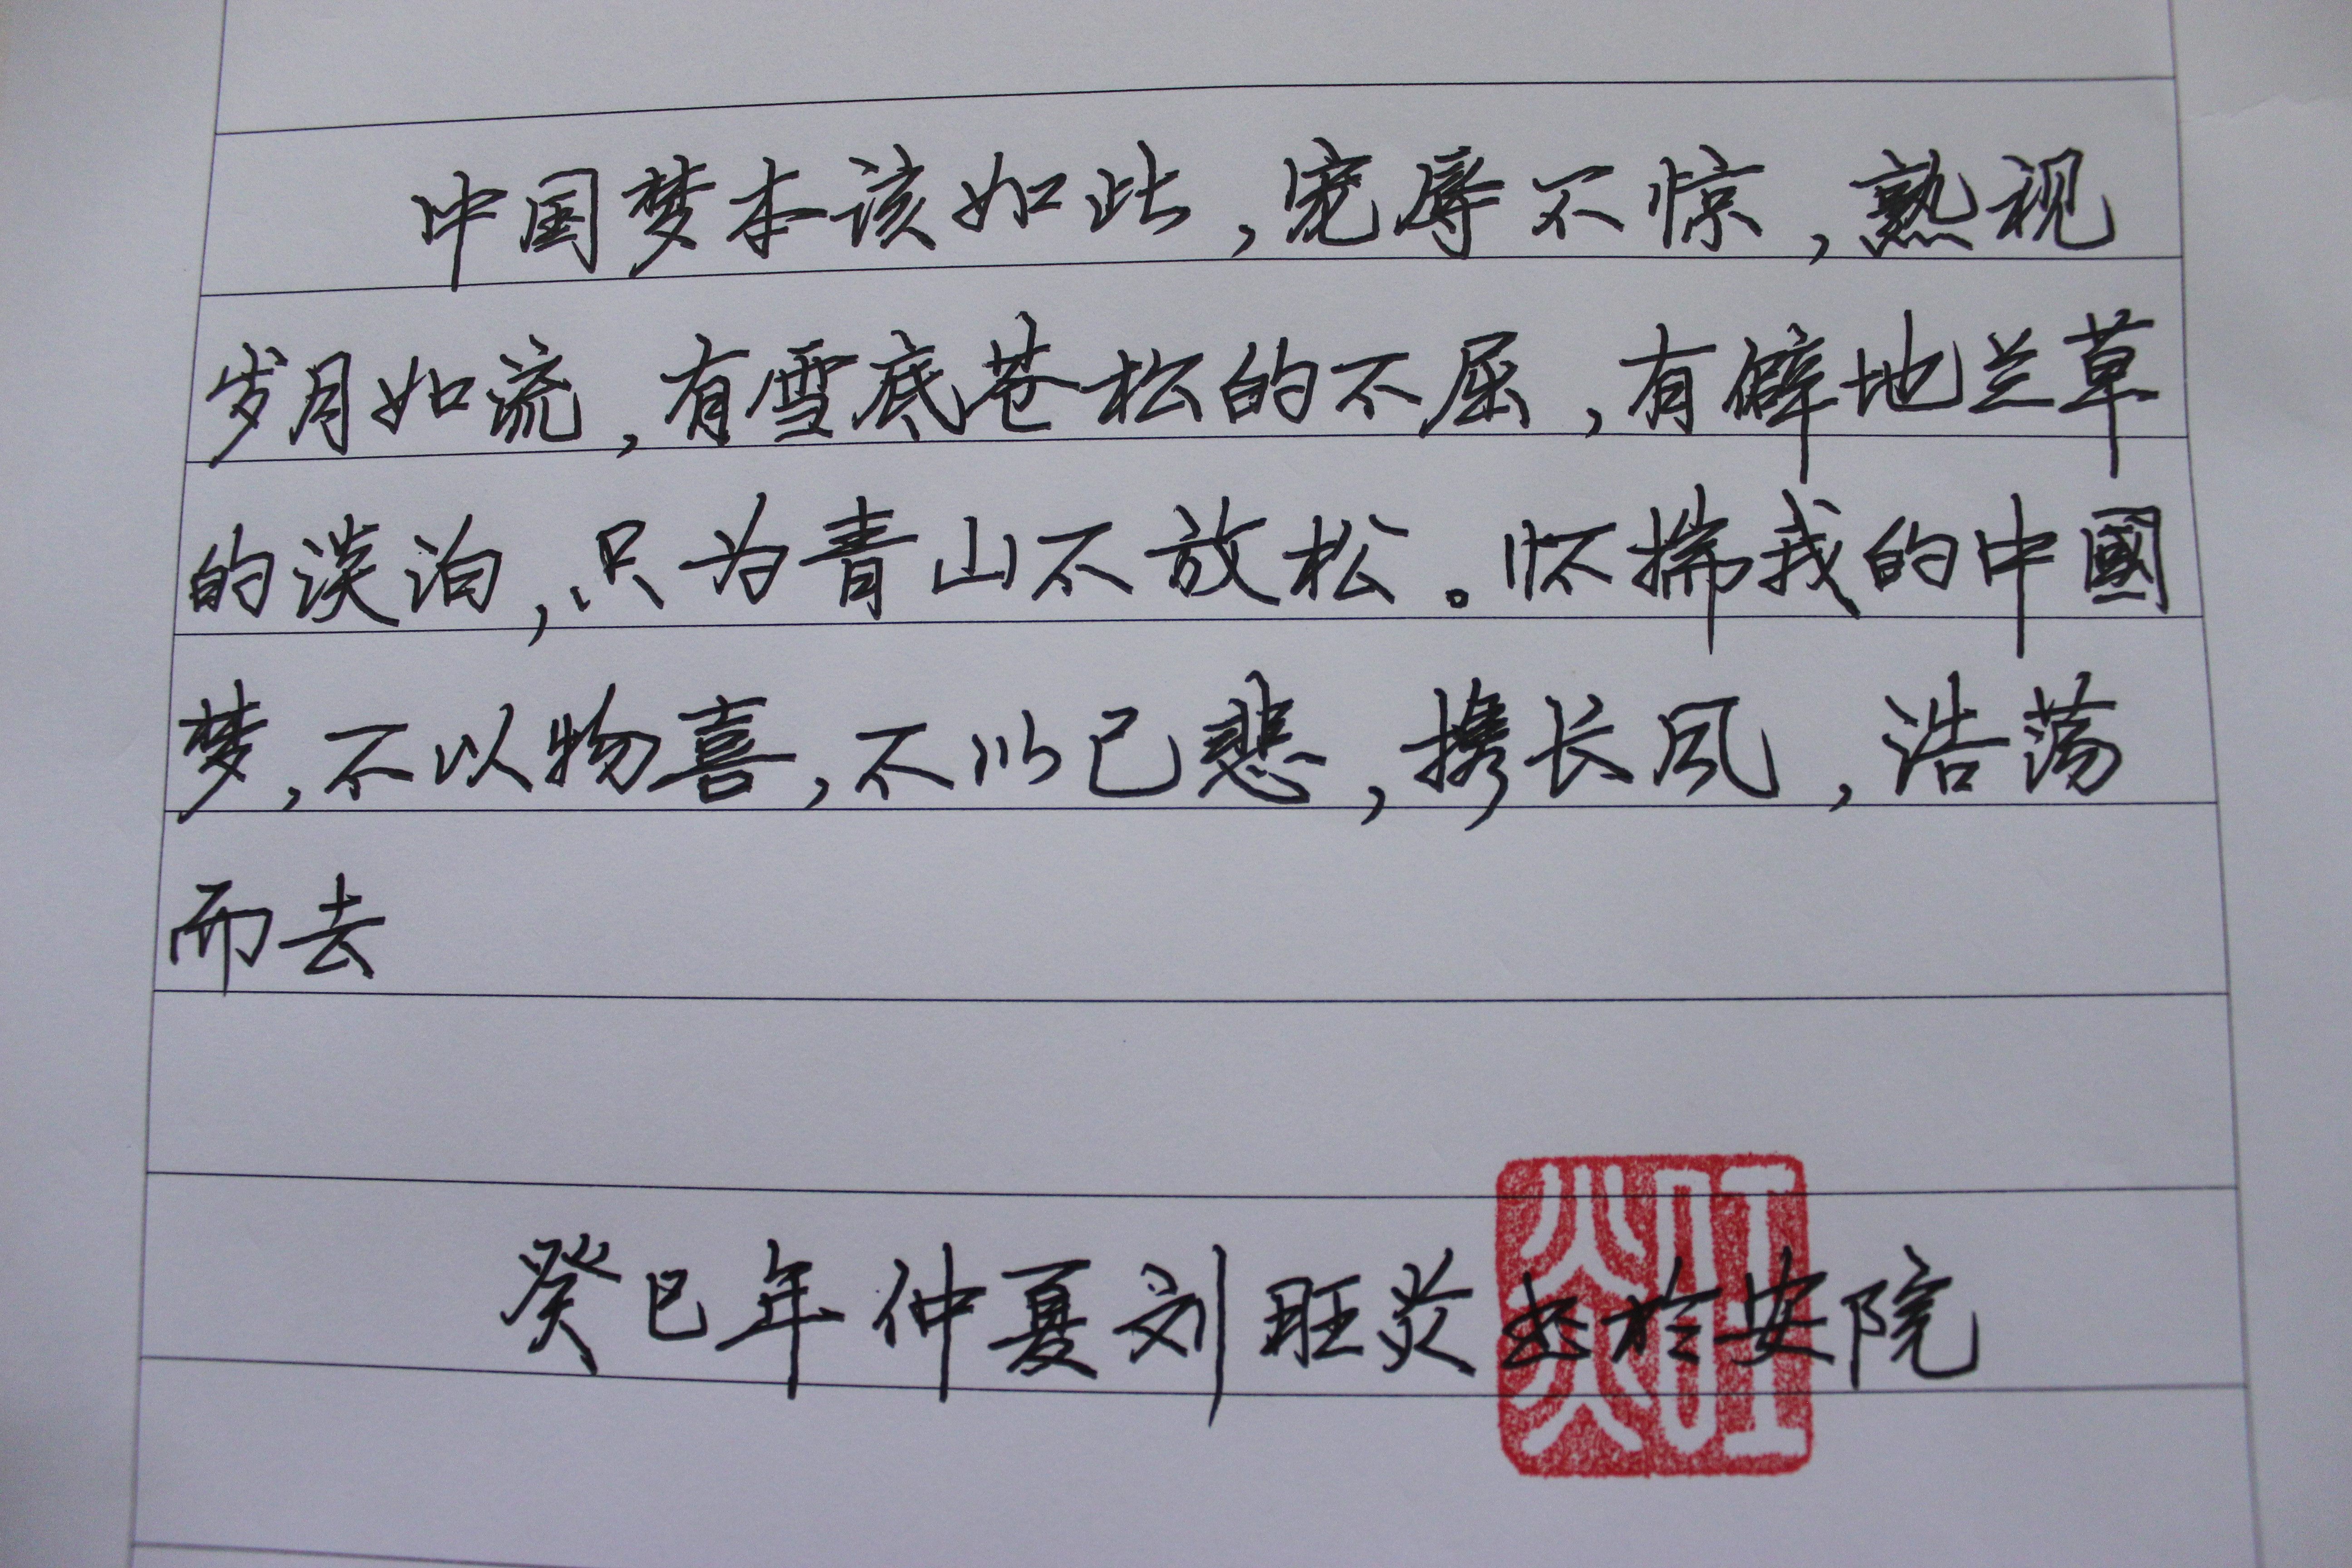 中国梦本该如此，宠辱不惊，熟视
岁月如流，有雪底苍松的不屈，有僻地兰草
的淡泊，只为青山不放松。怀揣我的中國
梦，不以物喜，不以己悲，携长风，浩荡
而去
癸巳年仲夏刘旺炎书於安院
旺炎